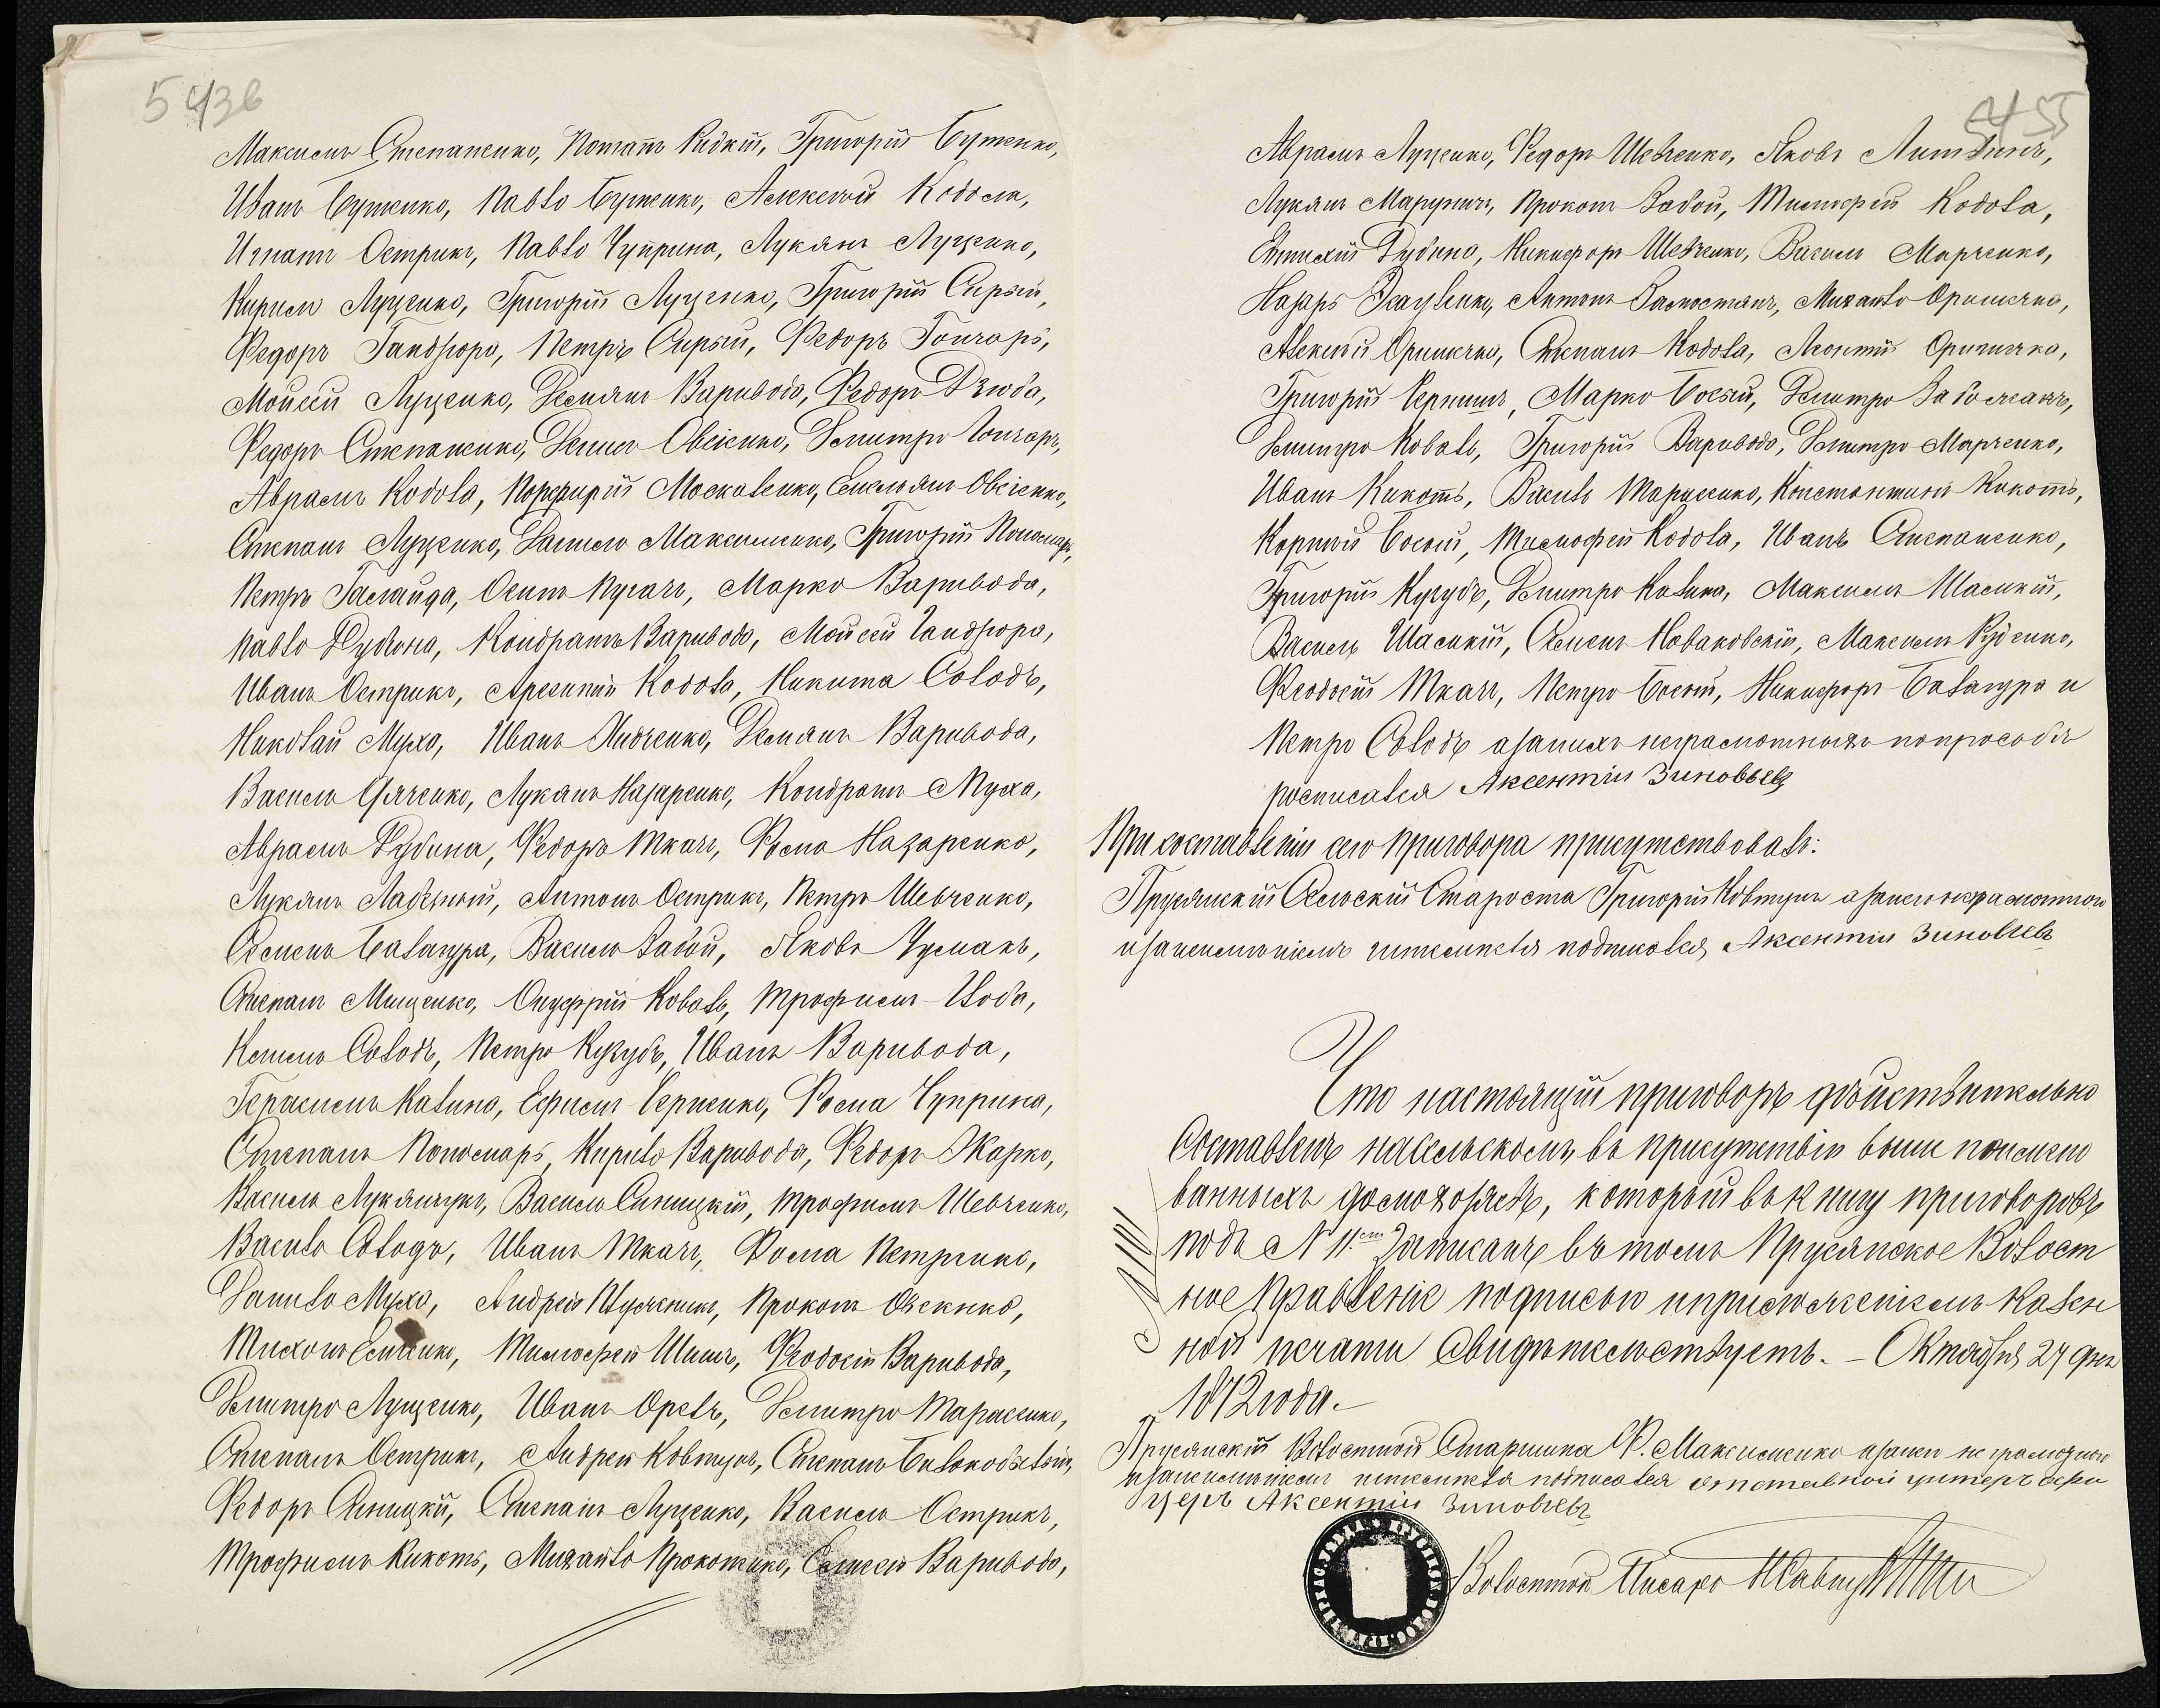 Максимъ Степаненко, Потапъ Ридкій, Григорій Бутенко,
Иванъ Бутенко, Павло Бутенко, Алексей Кодола,
Игнатъ Острикъ, Павло Чуприна, Лукянъ Луценко,
Кирило Луценко, Григорій Луценко, Григорій Сирый,
Федоръ Гандзюра, Петръ Сирый, Федоръ Гончаръ,
Мойсей Луценко, ДемянъВаривода, Федоръ Дзюба,
Федоръ Степаненко, Денисъ Овсіенко, Дмитро Гончаръ,
Аврамъ Кодола, Порфирій Москаленко, Емельянъ Овсіенко,
Степанъ Луценко, Данило Максименко, Григорій Пономаръ,
Петръ Гамайда, Осипъ Пугачъ, Марко Варивода,
Павло Дубина, Кондратъ Варивода, Мойсей Гандзюра,
Иванъ Острикъ, Арсентій Кодола, Никита Солодъ,
Николай Муха, Иванъ Дидченко, Демянъ Варивода,
Василь Дяченко, Лукянъ Назаренко, Кондратъ Муха,
Аврамъ Дубина, Федоръ Ткачъ, Фома Назаренко,
Лукянъ Антонъ Острикъ, Петръ Шевченко,
Семенъ Балагура, Василь Забой, Яковъ Чумакъ,
Степанъ Мищенко, Онуфрій Коваль, Трофимъ Цюба,
Солодъ, Петро Кугудъ, Иванъ Варивода,
Герасимъ Калина, Ефимъ Черненко, Фома Чуприна,
Степанъ Пономаръ, Кирило Варивода, Федоръ Жарко,
Василь Лукянчукъ, Василь Синицкій, Трофимъ Шевченко,
Василь Солодъ, Иванъ Ткачъ, Фома Петренко,
Данило Муха, Андрей Прокопъ
Тимофей Шишъ, Феодосій Варивода,
Дмитро Луценко, Иванъ Орелъ, Дмитро Тарасенко,
Степанъ Острикъ, Андрей Ковтунъ, Степанъ
Федоръ Синицкій, Степанъ Луценко, Василь Острикъ,
Трофимъ Кикоть, Михайло Прокопенко, Варивода,
Аврамъ Луценко, Федоръ Шевченко, Яковъ Литвинъ,
Лукянъ Прокопъ Забой, Тимофей Кодола,
Дубина, Никифоръ Шевченко, Василь Марченко,
Назаръ Антонъ Замостянъ, Михайло Оришечка,
Алексей Оришечка, Степанъ Кодола, Леонтій Оришечка,
Григорій Чернышъ, Марко Босый, Дмитро
Дмитро Коваль, Григорій Варивода, Дмитро Марченко,
Иванъ Кикоть, Василь Тарасенко, Константинъ Кикоть,
Корній Босый, Тимофей Кодола, Иванъ Степаненко,
Григорій Кугудъ, Дмитро Калина, Максимъ Шамкій,
Василь Шамкій, Семенъ Новаковскій, Максимъ Руденко,
Феодосій Ткачъ, Петро Босый, Никифоръ Балагура и
Петро Солодъ азанихъ неграмотныхъ попрособъ
росписался Аксентій Зиновьевъ
При составленіи сего приговора присутствовалъ:
Прусянскій Сельскій Староста Григорій Ковтунъ азанего неграмотного
подписался, Аксентій Зиновьевъ
Что настоящій приговоръ дѣйствительно
Составленъ насельскомъ въ присутствіи выше поимено
ванныхъ домохозяевъ, который въ книгу приговоровъ
подъ № 11.ᵐ записанъ въ томъ Прусянское Волост
ное Правленіе подписью иприложеніемъ казен
ной печати Свидѣтельствуетъ. – Октября 27 дня
1872 года.
Прусянскій Волостной Старшина Ф. Максименко азанего неграмотного
подписался отставной унтеръ офи
церъ Аксентій Зиновьевъ
Волостной Писарь